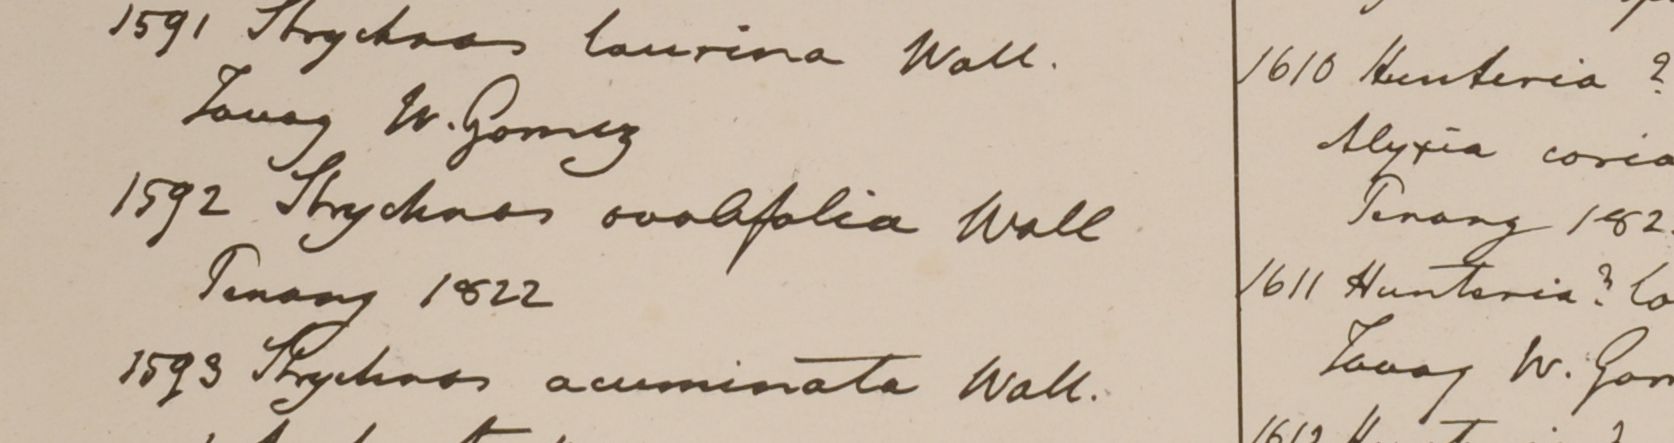 1591 Strychnos laurina Wall.
Tavoy W. Gomez
1592 Strychnos ovalifolia Wall
Penang 1822
1593 Strychnos acuminata Wall.
1610 Hunteria ?
Alyxia coria
Penang 182
1611 Hunteria ? lo
Tavoy W. Gom
1612